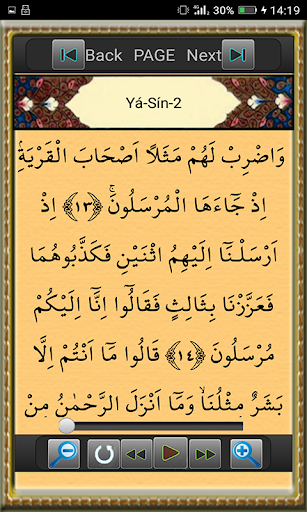 30% 14:19
Back PAGE Next
Yá-Sín-2
وَاضْرِبْ لَهُمْ مَثَلًا اَصْحَابَ الْقَرْيَةِۢ
اِذْ جَٓاءَهَا الْمُرْسَلُونَۚ ﴿١٣﴾ اِذْ
اَرْسَلْنَٓا اِلَيْهِمُ اثْنَيْنِ فَكَذَّبُوهُمَا
فَعَزَّزْنَا بِثَالِثٍ فَقَالُٓوا اِنَّٓا اِلَيْكُمْ
مُرْسَلُونَ ﴿١٤﴾ قَالُوا مَٓا اَنْتُمْ اِلَّا
بَشَرٌ مِثْلُنَاۙ وَمَٓا اَنْزَلَ الرَّحْمٰنُ مِنْ